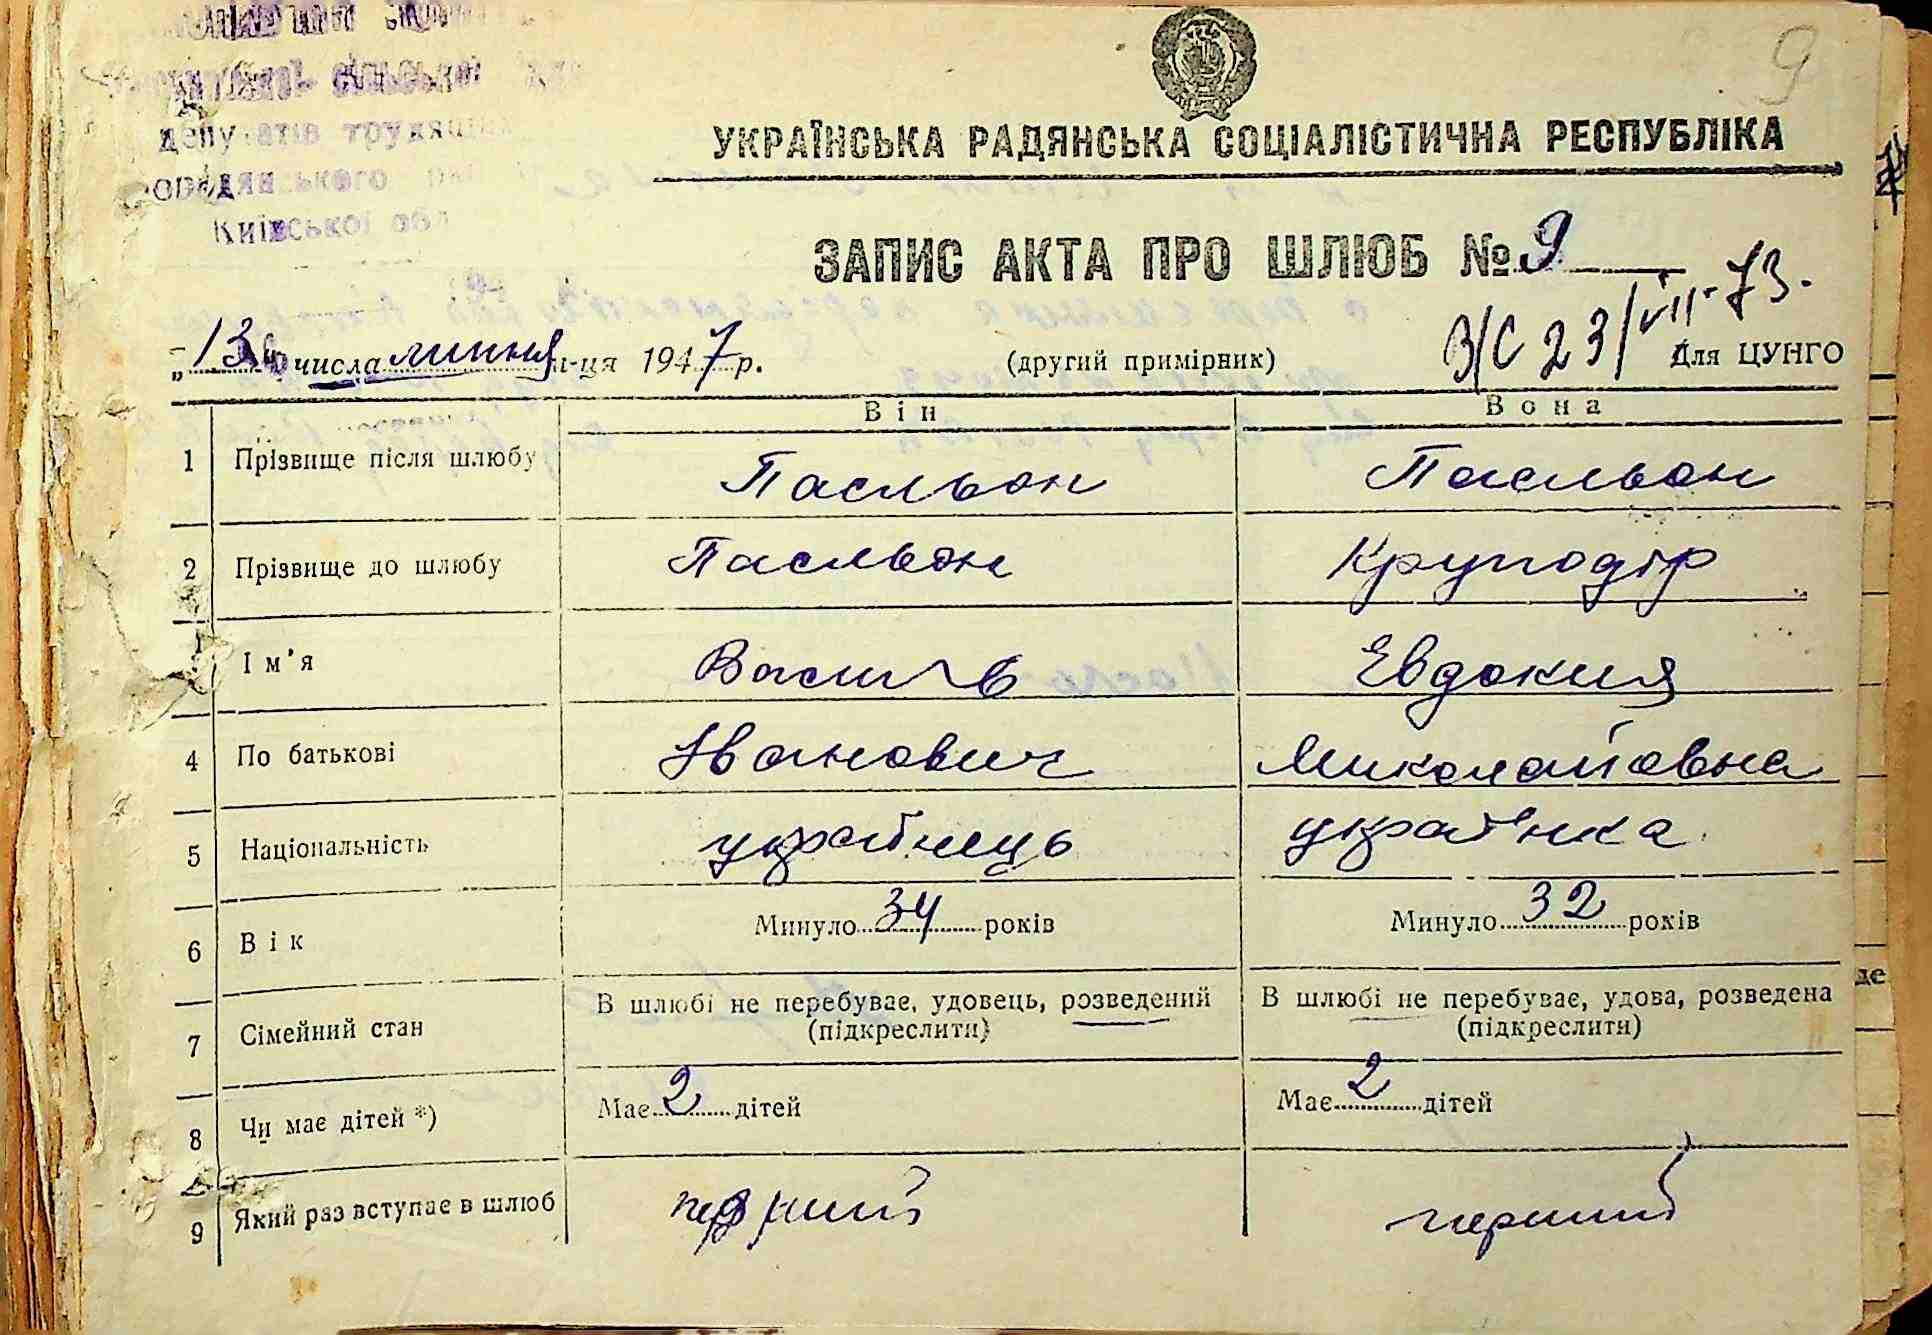 9
депутатів трудящих
Київської обл
УКРАЇНСЬКА РАДЯНСЬКА СОЦІАЛІСТИЧНА РЕСПУБЛІКА
ЗАПИС АКТА ПРО ШЛЮБ № 9
З/С 23/VII-73.
„13" числа липня м-ця 1947 р. (другий примірник) Для ЦУНГО
Він Вона
1 Прізвище після шлюбу Пасльон Пасльон
2 Прізвище до шлюбу Пасльон Круподір
Ім'я Василь Евдокия
4 По батькові Іванович Миколаївна
5 Національність українець українка
6 Вік Минуло 34 років Минуло 32 років
7 Сімейний стан В шлюбі не перебуває, удовець, розведений В шлюбі не перебуває, удова, розведена
(підкреслити) (підкреслити)
8 Чи має дітей *) Має 2 дітей Має 2 дітей
9 Який раз вступає в шлюб перший перший